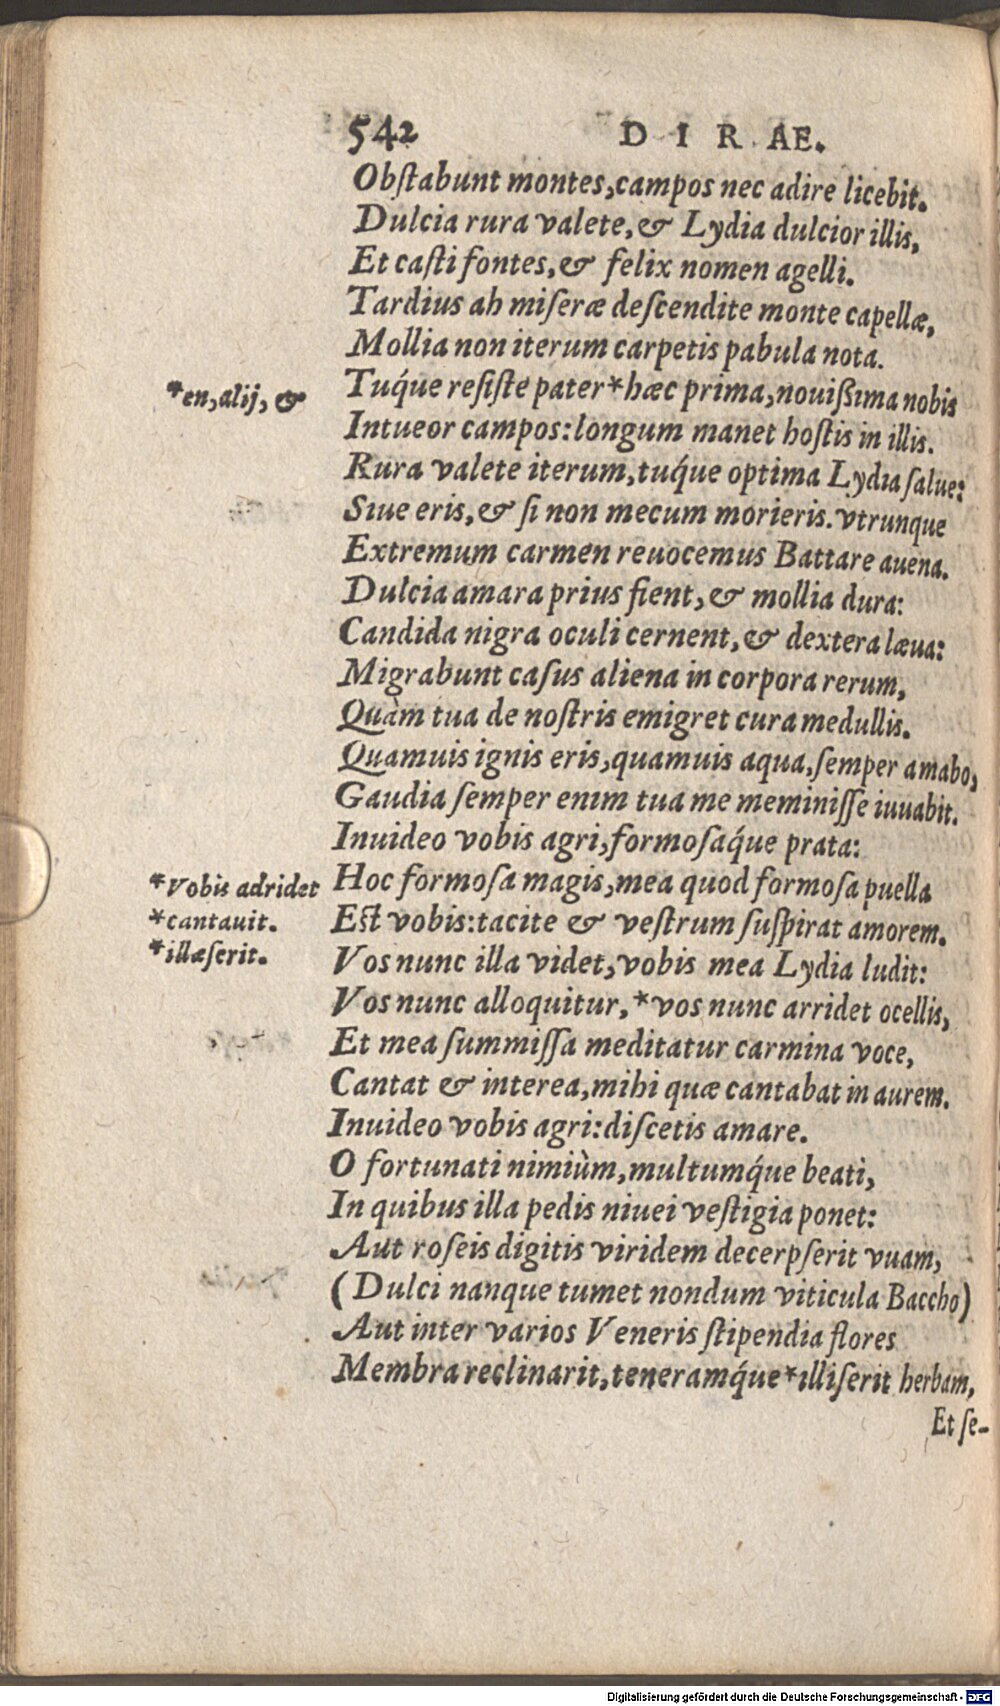 542 DIRAE.
Obſtabunt montes, campos nec adire licebit.
Dulcia rura valete, & Lydia dulcior illis,
Et caſti fontes, & felix nomen agelli.
Tardius ah miſeræ deſcendite monte capellæ,
Mollia non iterum carpetis pabula nota.
*en, alij, &
Tuq́ue reſiſte pater * hæc prima, nouiſsima nobis
Intueor campos: longum manet hoſtis in illis.
Rura valete iterum, tuq́ue optima Lydia ſalue:
Siue eris, & ſi non mecum morieris. vtrunque
Extremum carmen reuocemus Battare auena.
Dulcia amara prius fient, & mollia dura:
Candida nigra oculi cernent, & dextera læua:
Migrabunt caſus aliena in corpora rerum,
Quàm tua de noſtris emigret cura medullis.
Quamuis ignis eris, quamuis aqua, ſemper amabo,
Gaudia ſemper enim tua me meminiſſe iuuabit.
Inuideo vobis agri, formoſaq́ue prata:
*vobis adridet
Hoc formoſa magis, mea quod formoſa puella
*cantauit.
Eſt vobis: tacite & veſtrum ſuſpirat amorem.
*illæſerit.
Vos nunc illa videt, vobis mea Lydia ludit:
Vos nunc alloquitur, * vos nunc arridet ocellis,
Et mea ſummiſſa meditatur carmina voce,
Cantat & interea, mihi quæ cantabat in aurem.
Inuideo vobis agri: diſcetis amare.
O fortunati nimiùm, multumq́ue beati,
In quibus illa pedis niuei veſtigia ponet:
Aut roſeis digitis viridem decerpſerit vuam,
(Dulci nanque tumet nondum viticula Baccho)
Aut inter varios Veneris ſtipendia flores
Membra reclinarit, teneramq́ue * illiſerit herbam,
Et ſe-
Digitalisierung gefördert durch die Deutsche Forschungsgemeinschaft - DFG